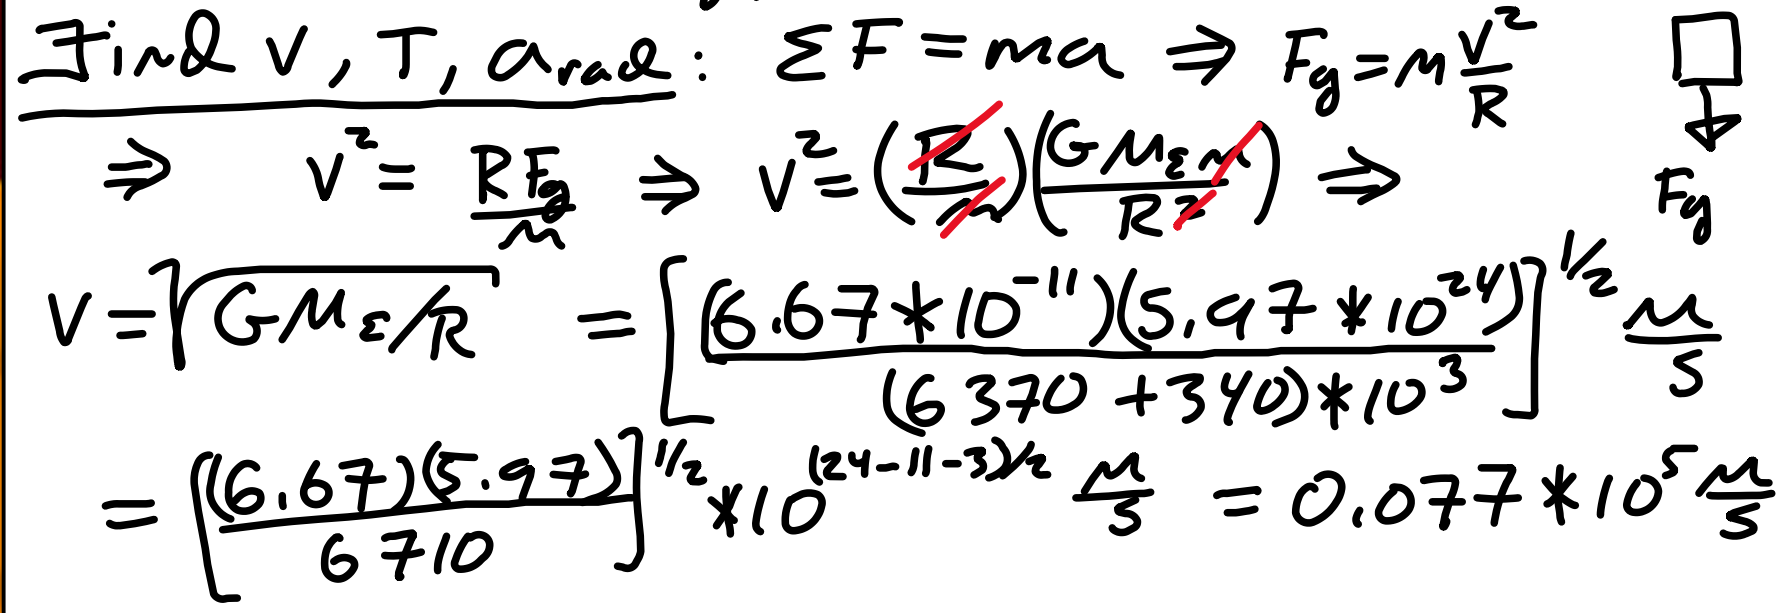 Find v, T, a_rad: ΣF = ma ⇒ F_g = m v²/R
⇒ v² = R F_g/m ⇒ v² = (R/m)(G M_E m/R²) ⇒ F_g
v = √(G M_E/R) = [(6.67*10^-11)(5.97*10^24)/(6370+340)*10^3]^1/2 m/s
= [(6.67)(5.97)/6710]^1/2 *10^(24-11-3)/2 m/s = 0.077*10^5 m/s